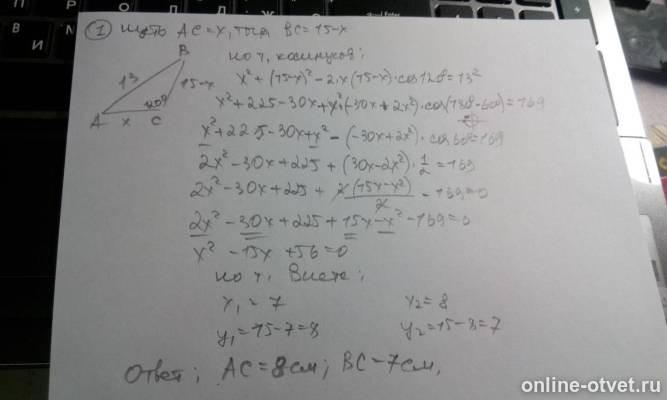 ① Пусть AC=x, тогда BC=15-x
по т. косинусов:
B
13
15-x
120°
A x C
x²+(15-x)²-2·x(15-x)·cos120°=13²
x²+225-30x+x²(-30x+2x²)·cos(180°-60°)=169
x²+225-30x+x²-(-30x+2x²)·cos60°=169
2x²-30x+225+(30x-2x²)·1/2=169
2x²-30x+225+2(15x-x²)/2-169=0
2x²-30x+225+15x-x²-169=0
x²-15x+56=0
по т. Виета:
x₁=7 x₂=8
y₁=15-7=8 y₂=15-8=7
Ответ: AC=8см; BC=7см.
online-otvet.ru